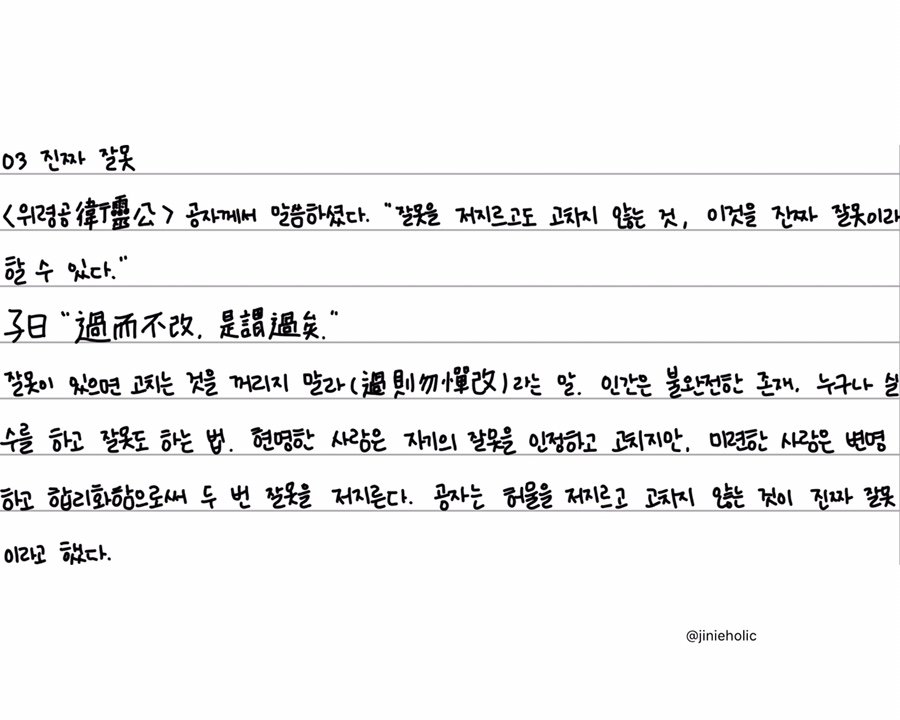 03 진짜 잘못
<위령공衛靈公> 공자께서 말씀하셨다. "잘못을 저지르고도 고치지 않는 것, 이것을 진짜 잘못이라
할 수 있다."
子曰 "過而不改, 是謂過矣."
잘못이 있으면 고치는 것을 꺼리지 말라(過則勿憚改)라는 말. 인간은 불완전한 존재. 누구나 실
수를 하고 잘못도 하는 법. 현명한 사람은 자기의 잘못을 인정하고 고치지만, 미련한 사람은 변명
하고 합리화함으로써 두 번 잘못을 저지른다. 공자는 허물을 저지르고 고치지 않는 것이 진짜 잘못
이라고 했다.
@jinieholic